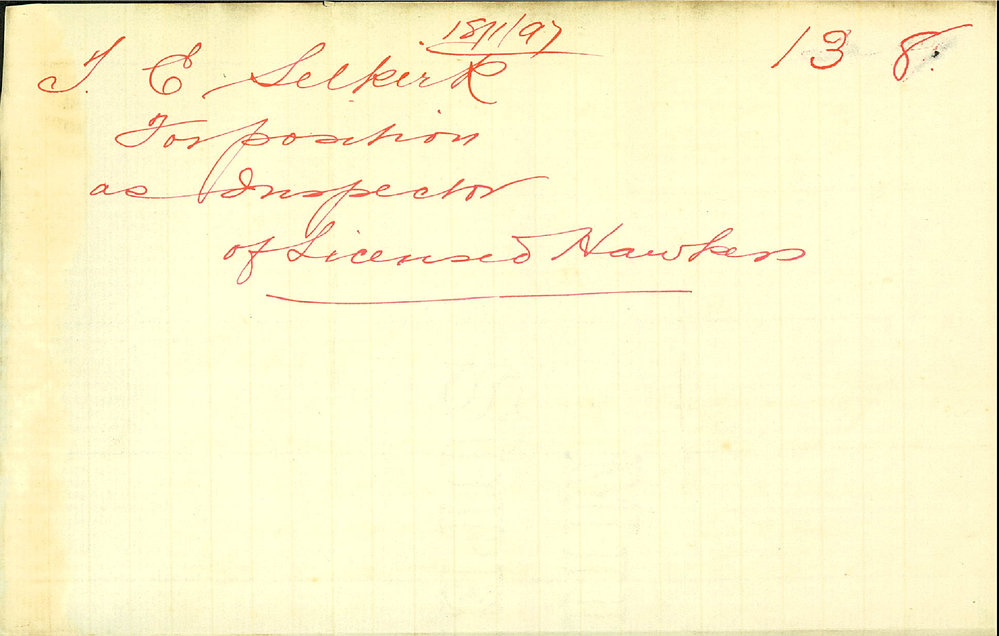 18/11/97
13 8.
T. E. Selkirk
For position
as Inspector
of Licensed Hawkers